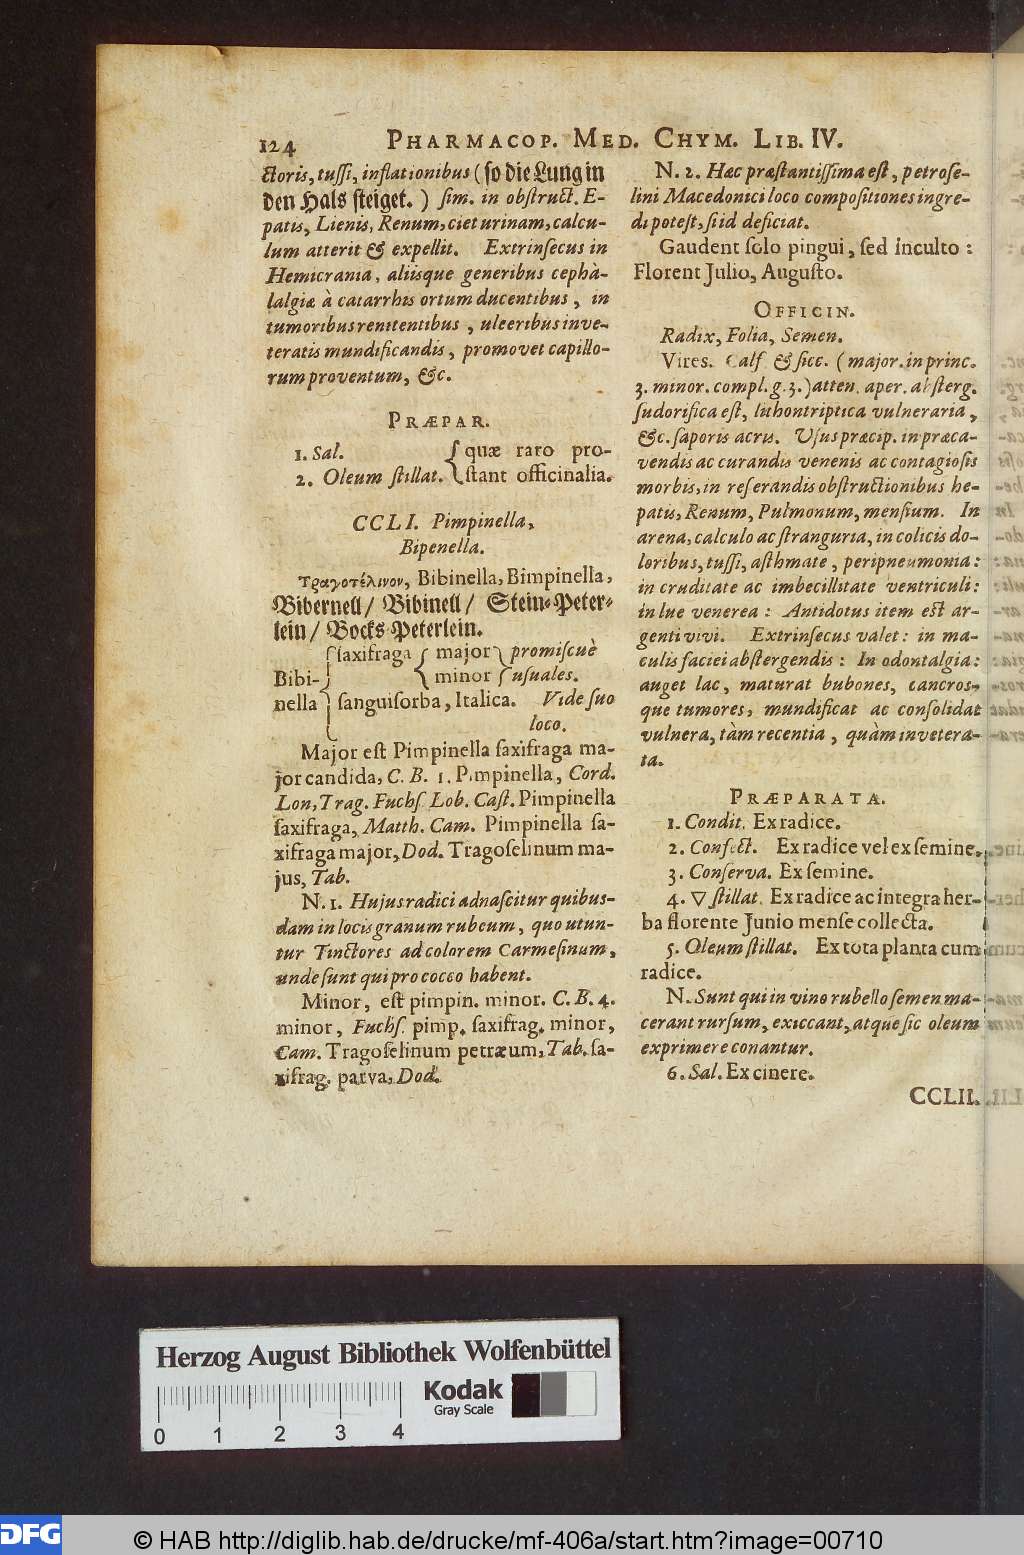 124 PHARMACOP. MED. CHYM. LIB. IV.
ctoris, tuſſi, inflationibus (ſo die Lung in
den Hals ſteiget.) ſim. in obſtruct. E-
patis, Lienis, Renum, ciet urinam, calcu-
lum atterit & expellit. Extrinſecus in
Hemicrania, aliisque generibus cephà-
lalgiæ à catarrhis ortum ducentibus, in
tumoribus renitentibus, ulceribus inve-
teratis mundificandis, promovet capillo-
rum proventum, &c.
PRÆPAR.
1. Sal. { quæ raro pro-
2. Oleum ſtillat. { ſtant officinalia.
CCLI. Pimpinella,
Bipenella.
Τραγοτέλινον, Bibinella, Bimpinella,
Bibernell / Bibinell / Stein-Peter-
lein / Bocks-Peterlein.
{ ſaxifraga { major } promiſcuè
Bibi- { minor } uſuales.
nella } ſanguiſorba, Italica. Vide ſuo
loco.
Major eſt Pimpinella ſaxifraga ma-
jor candida, C. B. 1. Pimpinella, Cord.
Lon, Trag. Fuchſ. Lob. Caſt. Pimpinella
ſaxifraga, Matth. Cam. Pimpinella ſa-
xifraga major, Dod. Tragoſelinum ma-
jus, Tab.
N. 1. Hujus radici adnaſcitur quibus-
dam in locis granum rubeum, quo utun-
tur Tinctores ad colorem Carmeſinum,
unde ſunt qui pro cocco habent.
Minor, eſt pimpin. minor. C. B. 4.
minor, Fuchſ. pimp. ſaxifrag. minor,
Cam. Tragoſelinum petræum, Tab. ſa-
xifrag. parva, Dod.
N. 2. Hæc præſtantiſſima eſt, petroſe-
lini Macedonici loco compoſitiones ingre-
di poteſt, ſi id deficiat.
Gaudent ſolo pingui, ſed inculto:
Florent Julio, Auguſto.
OFFICIN.
Radix, Folia, Semen.
Vires. Calf. & ſicc. (major. in princ.
3. minor. compl. g. 3.) atten. aper. abſterg.
ſudorifica eſt, lithontriptica vulneraria,
&c. ſaporis acris. Uſus præcip. in præca-
vendis ac curandis venenis ac contagioſis
morbis, in reſerandis obſtructionibus he-
patis, Renum, Pulmonum, menſium. In
arena, calculo ac ſtranguria, in colicis do-
loribus, tuſſi, aſthmate, peripneumonia:
in cruditate ac imbecillitate ventriculi:
in lue venerea: Antidotus item eſt ar-
genti vivi. Extrinſecus valet: in ma-
culis faciei abſtergendis: In odontalgia:
auget lac, maturat bubones, cancros-
que tumores, mundificat ac conſolidat
vulnera, tàm recentia, quàm invetera-
ta.
PRÆPARATA.
1. Condit. Ex radice.
2. Confect. Ex radice vel ex ſemine.
3. Conſerva. Ex ſemine.
4. ▽ ſtillat. Ex radice ac integra her-
ba florente Junio menſe collecta.
5. Oleum ſtillat. Ex tota planta cum
radice.
N. Sunt qui in vino rubello ſemen ma-
cerant rurſum, exiccant, atque ſic oleum
exprimere conantur.
6. Sal. Ex cinere.
CCLII.
Herzog August Bibliothek Wolfenbüttel
Kodak
Gray Scale
0 1 2 3 4
DFG © HAB http://diglib.hab.de/drucke/mf-406a/start.htm?image=00710